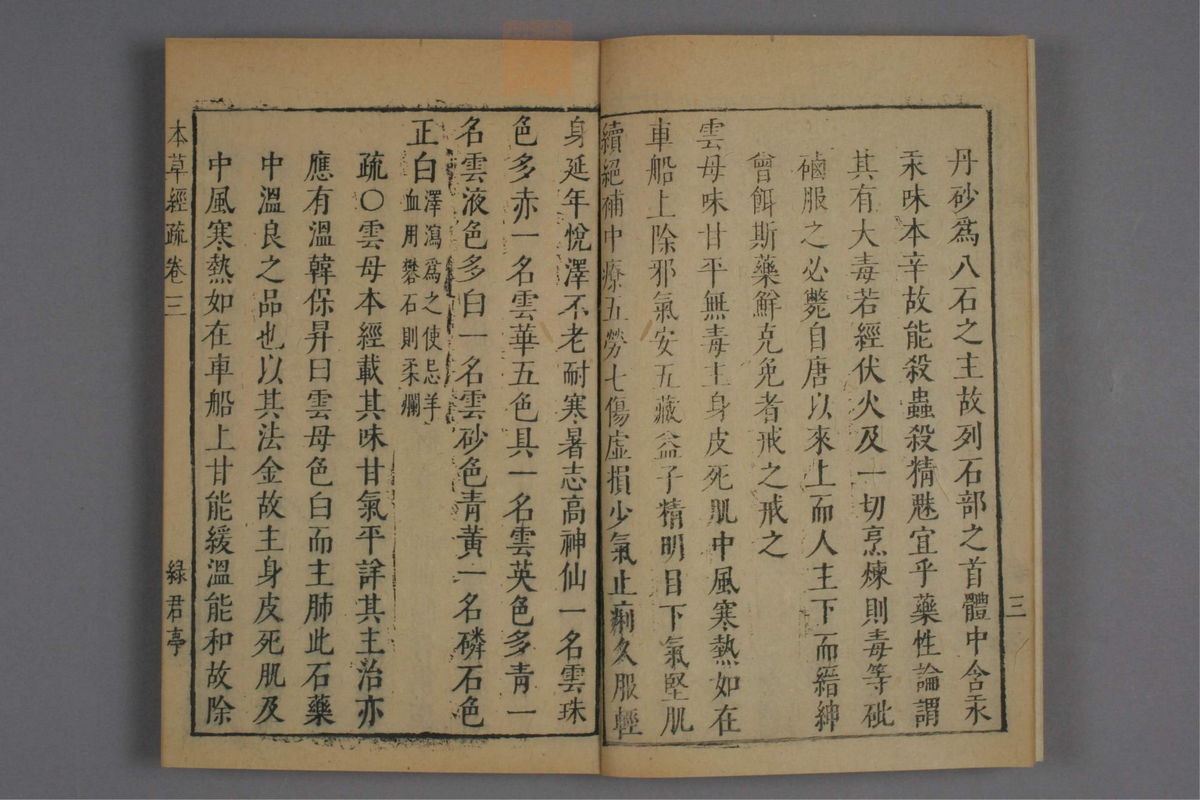 三
丹砂爲八石之主故列石部之首體中含汞
汞味本辛故能殺蟲殺精魅宜乎藥性論謂
其有大毒若經伏火及一切烹煉則毒等砒
䃁服之必斃自唐以來上而人主下而縉紳
曾餌斯藥鮮克免者戒之戒之
雲母味甘平無毒主身皮死肌中風寒熱如在
車船上除邪氣安五藏益子精明目下氣堅肌
續絕補中療五勞七傷虛損少氣止痢久服輕
身延年悅澤不老耐寒暑志高神仙一名雲珠
色多赤一名雲華五色具一名雲英色多青一
名雲液色多白一名雲砂色青黃一名磷石色
正白澤瀉爲之使忌羊
血用礬石則柔爛
疏○雲母本經載其味甘氣平詳其主治亦
應有溫韓保昇曰雲母色白而主肺此石藥
中溫良之品也以其法金故主身皮死肌及
中風寒熱如在車船上甘能緩溫能和故除
本草經疏 卷三 綠君亭